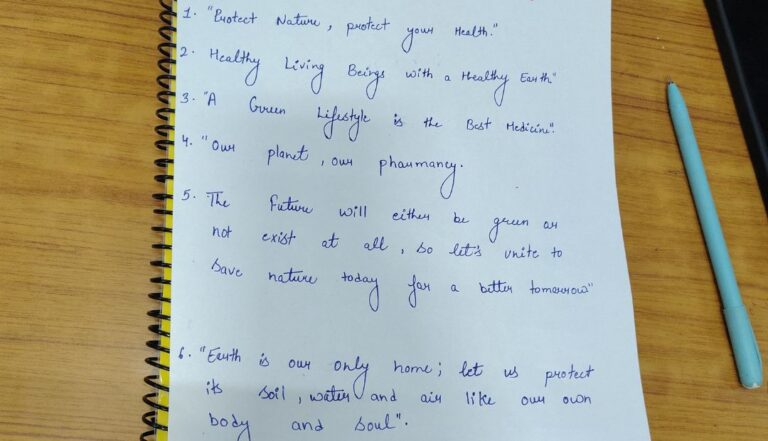 1. "Protect Nature, protect your Health."
2. Healthy Living Beings with a Healthy Earth"
3. "A Green Lifestyle is the Best Medicine".
4. "Our planet, our pharmancy.
5. The future will either be green or
not exist at all, so let's unite to
save nature today for a better tomorrow"
6. "Earth is our only home; let us protect
its soil, water and air like our own
body and soul".